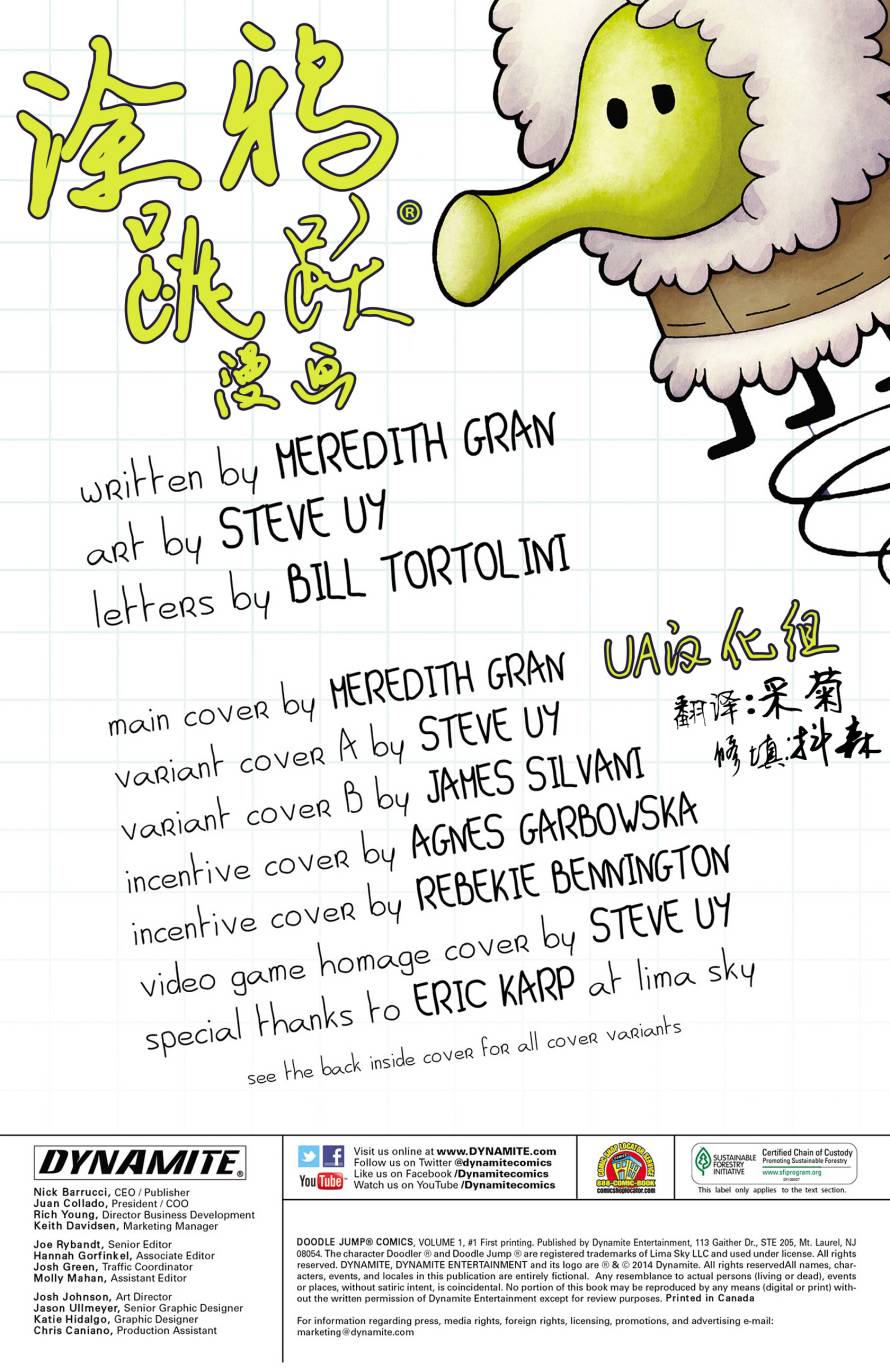 涂鸦
跳跃®
漫画
written by MEREDITH GRAN
art by STEVE UY
letters by BILL TORTOLINI
UA汉化组
翻译:采菊
修填:抖森
main cover by MEREDITH GRAN
variant cover A by STEVE UY
variant cover B by JAMES SILVANI
incentive cover by AGNES GARBOWSKA
incentive cover by REBEKIE BENNINGTON
video game homage cover by STEVE UY
special thanks to ERIC KARP at lima sky
see the back inside cover for all cover variants
DYNAMITE®
Nick Barrucci, CEO / Publisher
Juan Collado, President / COO
Rich Young, Director Business Development
Keith Davidsen, Marketing Manager
Joe Rybandt, Senior Editor
Hannah Gorfinkel, Associate Editor
Josh Green, Traffic Coordinator
Molly Mahan, Assistant Editor
Josh Johnson, Art Director
Jason Ullmeyer, Senior Graphic Designer
Katie Hidalgo, Graphic Designer
Chris Caniano, Production Assistant
You Tube
Visit us online at www.DYNAMITE.com
Follow us on Twitter @dynamitecomics
Like us on Facebook /Dynamitecomics
Watch us on YouTube /Dynamitecomics
COMIC SHOP LOCATOR SERVICE
888-COMIC-BOOK
comicshoplocator.com
SUSTAINABLE
FORESTRY
INITIATIVE
Certified Chain of Custody
Promoting Sustainable Forestry
www.sfiprogram.org
This label only applies to the text section.
DOODLE JUMP® COMICS, VOLUME 1, #1 First printing. Published by Dynamite Entertainment, 113 Gaither Dr., STE 205, Mt. Laurel, NJ
08054. The character Doodler ® and Doodle Jump ® are registered trademarks of Lima Sky LLC and used under license. All rights
reserved. DYNAMITE, DYNAMITE ENTERTAINMENT and its logo are ® & © 2014 Dynamite. All rights reservedAll names, char-
acters, events, and locales in this publication are entirely fictional. Any resemblance to actual persons (living or dead), events
or places, without satiric intent, is coincidental. No portion of this book may be reproduced by any means (digital or print) with-
out the written permission of Dynamite Entertainment except for review purposes. Printed in Canada
For information regarding press, media rights, foreign rights, licensing, promotions, and advertising e-mail:
marketing@dynamite.com